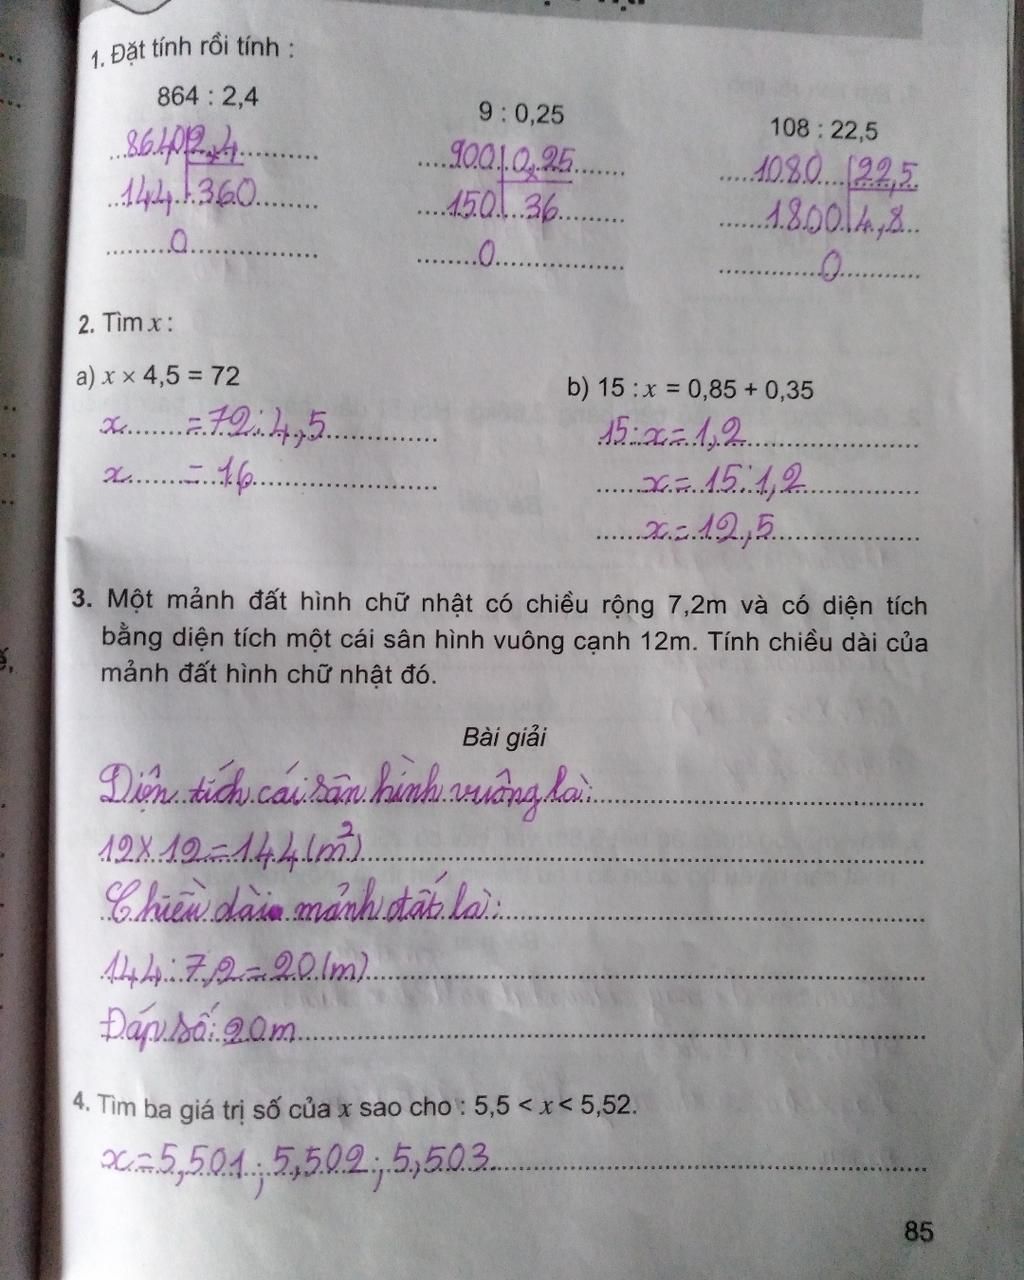 1. Đặt tính rồi tính :
864 : 2,4 9 : 0,25 108 : 22,5
8640 2,4 900 0,25 1080 22,5
144 360 150 36 1800 4,8
0 0 0
2. Tìm x :
a) x × 4,5 = 72 b) 15 : x = 0,85 + 0,35
x = 72 : 4,5 15 : x = 1,2
x = 16 x = 15 : 1,2
x = 12,5
3. Một mảnh đất hình chữ nhật có chiều rộng 7,2m và có diện tích
bằng diện tích một cái sân hình vuông cạnh 12m. Tính chiều dài của
mảnh đất hình chữ nhật đó.
Bài giải
Diện tích cái sân hình vuông là:
12 x 12 = 144 (m²)
Chiều dài mảnh đất là:
144 : 7,2 = 20 (m)
Đáp số: 20m
4. Tìm ba giá trị số của x sao cho : 5,5 < x < 5,52.
x = 5,501 ; 5,502 ; 5,503
85